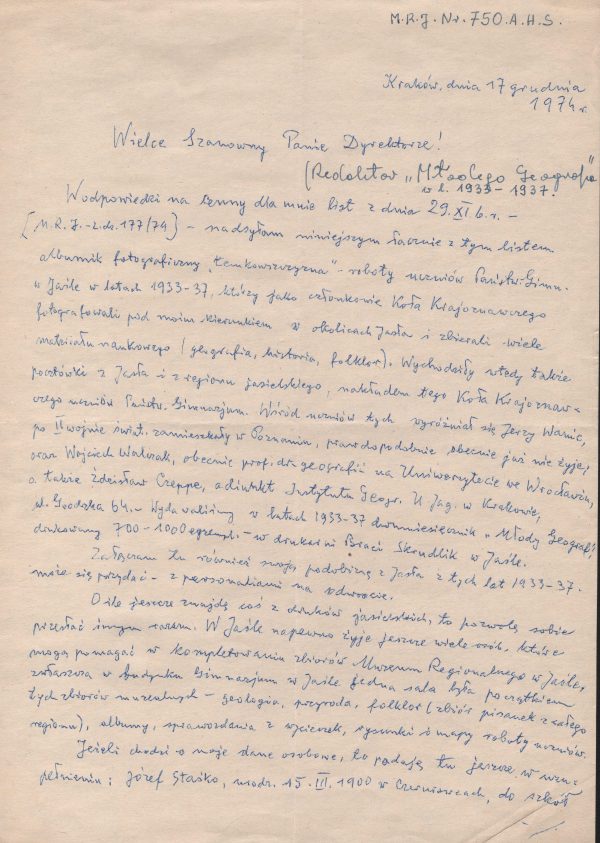 M.R.J. Nr. 750.A.H.S.
Kraków, dnia 17 grudnia
1974 r.
Wielce Szanowny Panie Dyrektorze!
(Redaktor „Młodego Geografa"
w l. 1933-1937.
W odpowiedzi na cenny dla mnie list z dnia 29.XI b.r. -
[M.R.J. -L.dz. 177/74] - nadsyłam niniejszym łącznie z tym listem
albumik fotograficzny „Łemkowszczyzna" - roboty uczniów Państw. Gimn.
w Jaśle w latach 1933-37, którzy jako członkowie Koła Krajoznawczego
fotografowali pod moim kierunkiem w okolicach Jasła i zbierali wiele
materiału naukowego (geografia, historia, folklor). Wychodziły wtedy także
pocztówki z Jasła i z regionu jasielskiego, nakładem tego Koła Krajoznaw=
czego uczniów Państw. Gimnazjum. Wśród uczniów tych wyróżniał się Jerzy
po II wojnie świat. zamieszkały w Poznaniu, prawdopodobnie obecnie już nie żyje,
oraz Wojciech Walczak, obecnie prof. dr. geografii na Uniwersytecie we Wrocławiu,
a także Zdzisław Czeppe, adiunkt Instytutu Geogr. U. Jag. w Krakowie,
ul. Grodzka 64. - Wydawaliśmy w latach 1933-37 dwumiesięcznik „Młody Geograf",
drukowany 700-1000 egzempl. - w drukarni Braci Skrudlik w Jaśle.
Załączam tu również swoją podobiznę z Jasła z tych lat 1933-37.
może się przydać - z personaliami na odwrocie.
O ile jeszcze znajdę coś z druków jasielskich, to pozwolę sobie
przesłać innym razem. W Jaśle napewno żyje jeszcze wiele osób, które
mogą pomagać w kompletowaniu zbiorów Muzeum Regionalnego w Jaśle,
zwłaszcza w budynku Gimnazjum w Jaśle jedna sala była początkiem
tych zbiorów muzealnych - geologia, przyroda, folklor (zbiór pisanek z całego
regionu), albumy, sprawozdania z wycieczek, rysunki i mapy roboty uczniów.
Jeżeli chodzi o moje dane osobowe, to podaję tu jeszcze w uzu=
pełnieniu: Józef Staśko, urodz. 15.III.1900 w Czerniawcach, do szkół